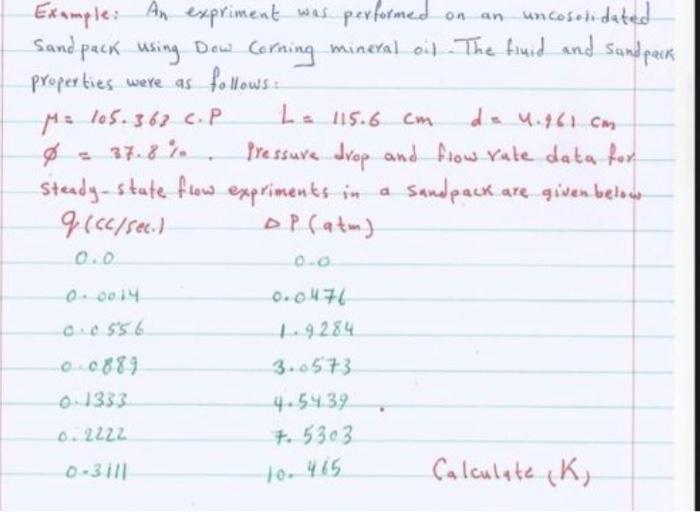 Example: An expriment was performed on an uncosolidated
Sandpack using Dow Corning mineral oil. The fluid and sandpack
properties were as follows:
μ = 105.363 C.P L = 115.6 cm d = 4.961 cm
ø = 37.8 %. Pressure drop and flow rate data for
steady-state flow expriments in a sandpack are given below
q (cc/sec.) ΔP (atm)
0.0 0.0
0.0014 0.0476
0.0556 1.9284
0.0889 3.0573
0.1333 4.5439
0.2222 7.5303
0.3111 10.465 Calculate (K)